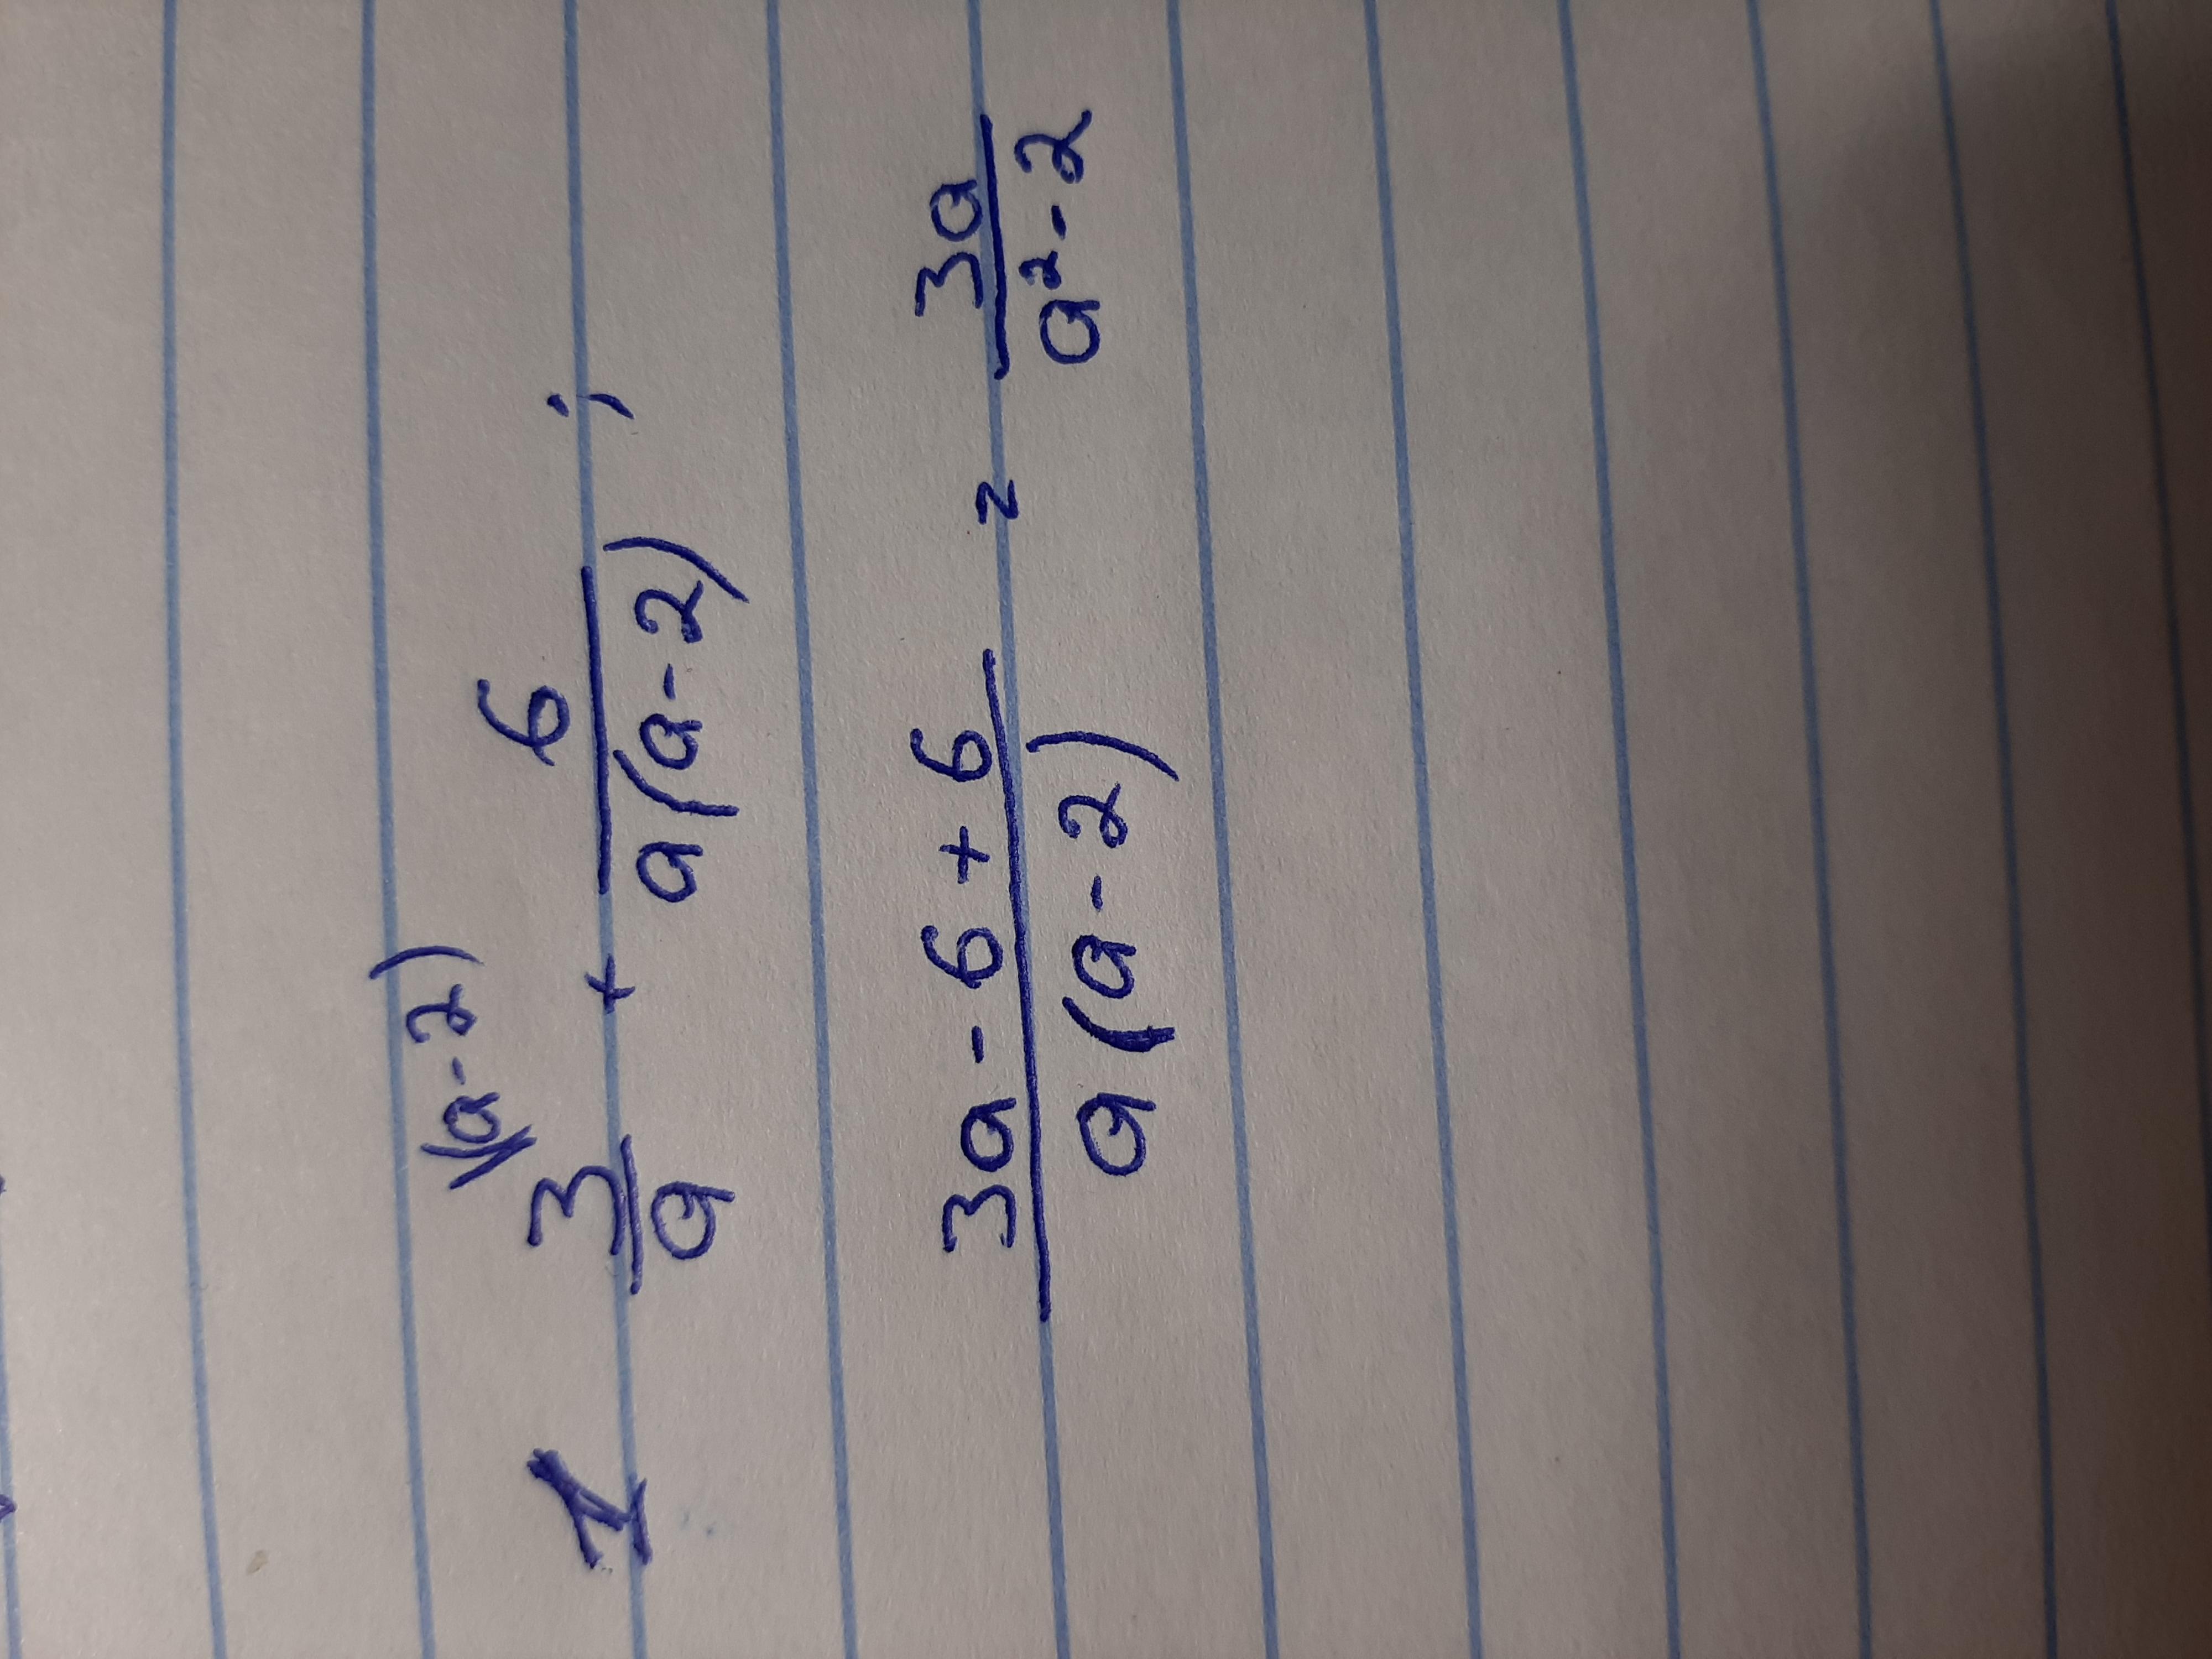 1 3/a \(a-2) + 6/a(a-2) ;
3a - 6 + 6/a(a-2) = 3a/a²-2